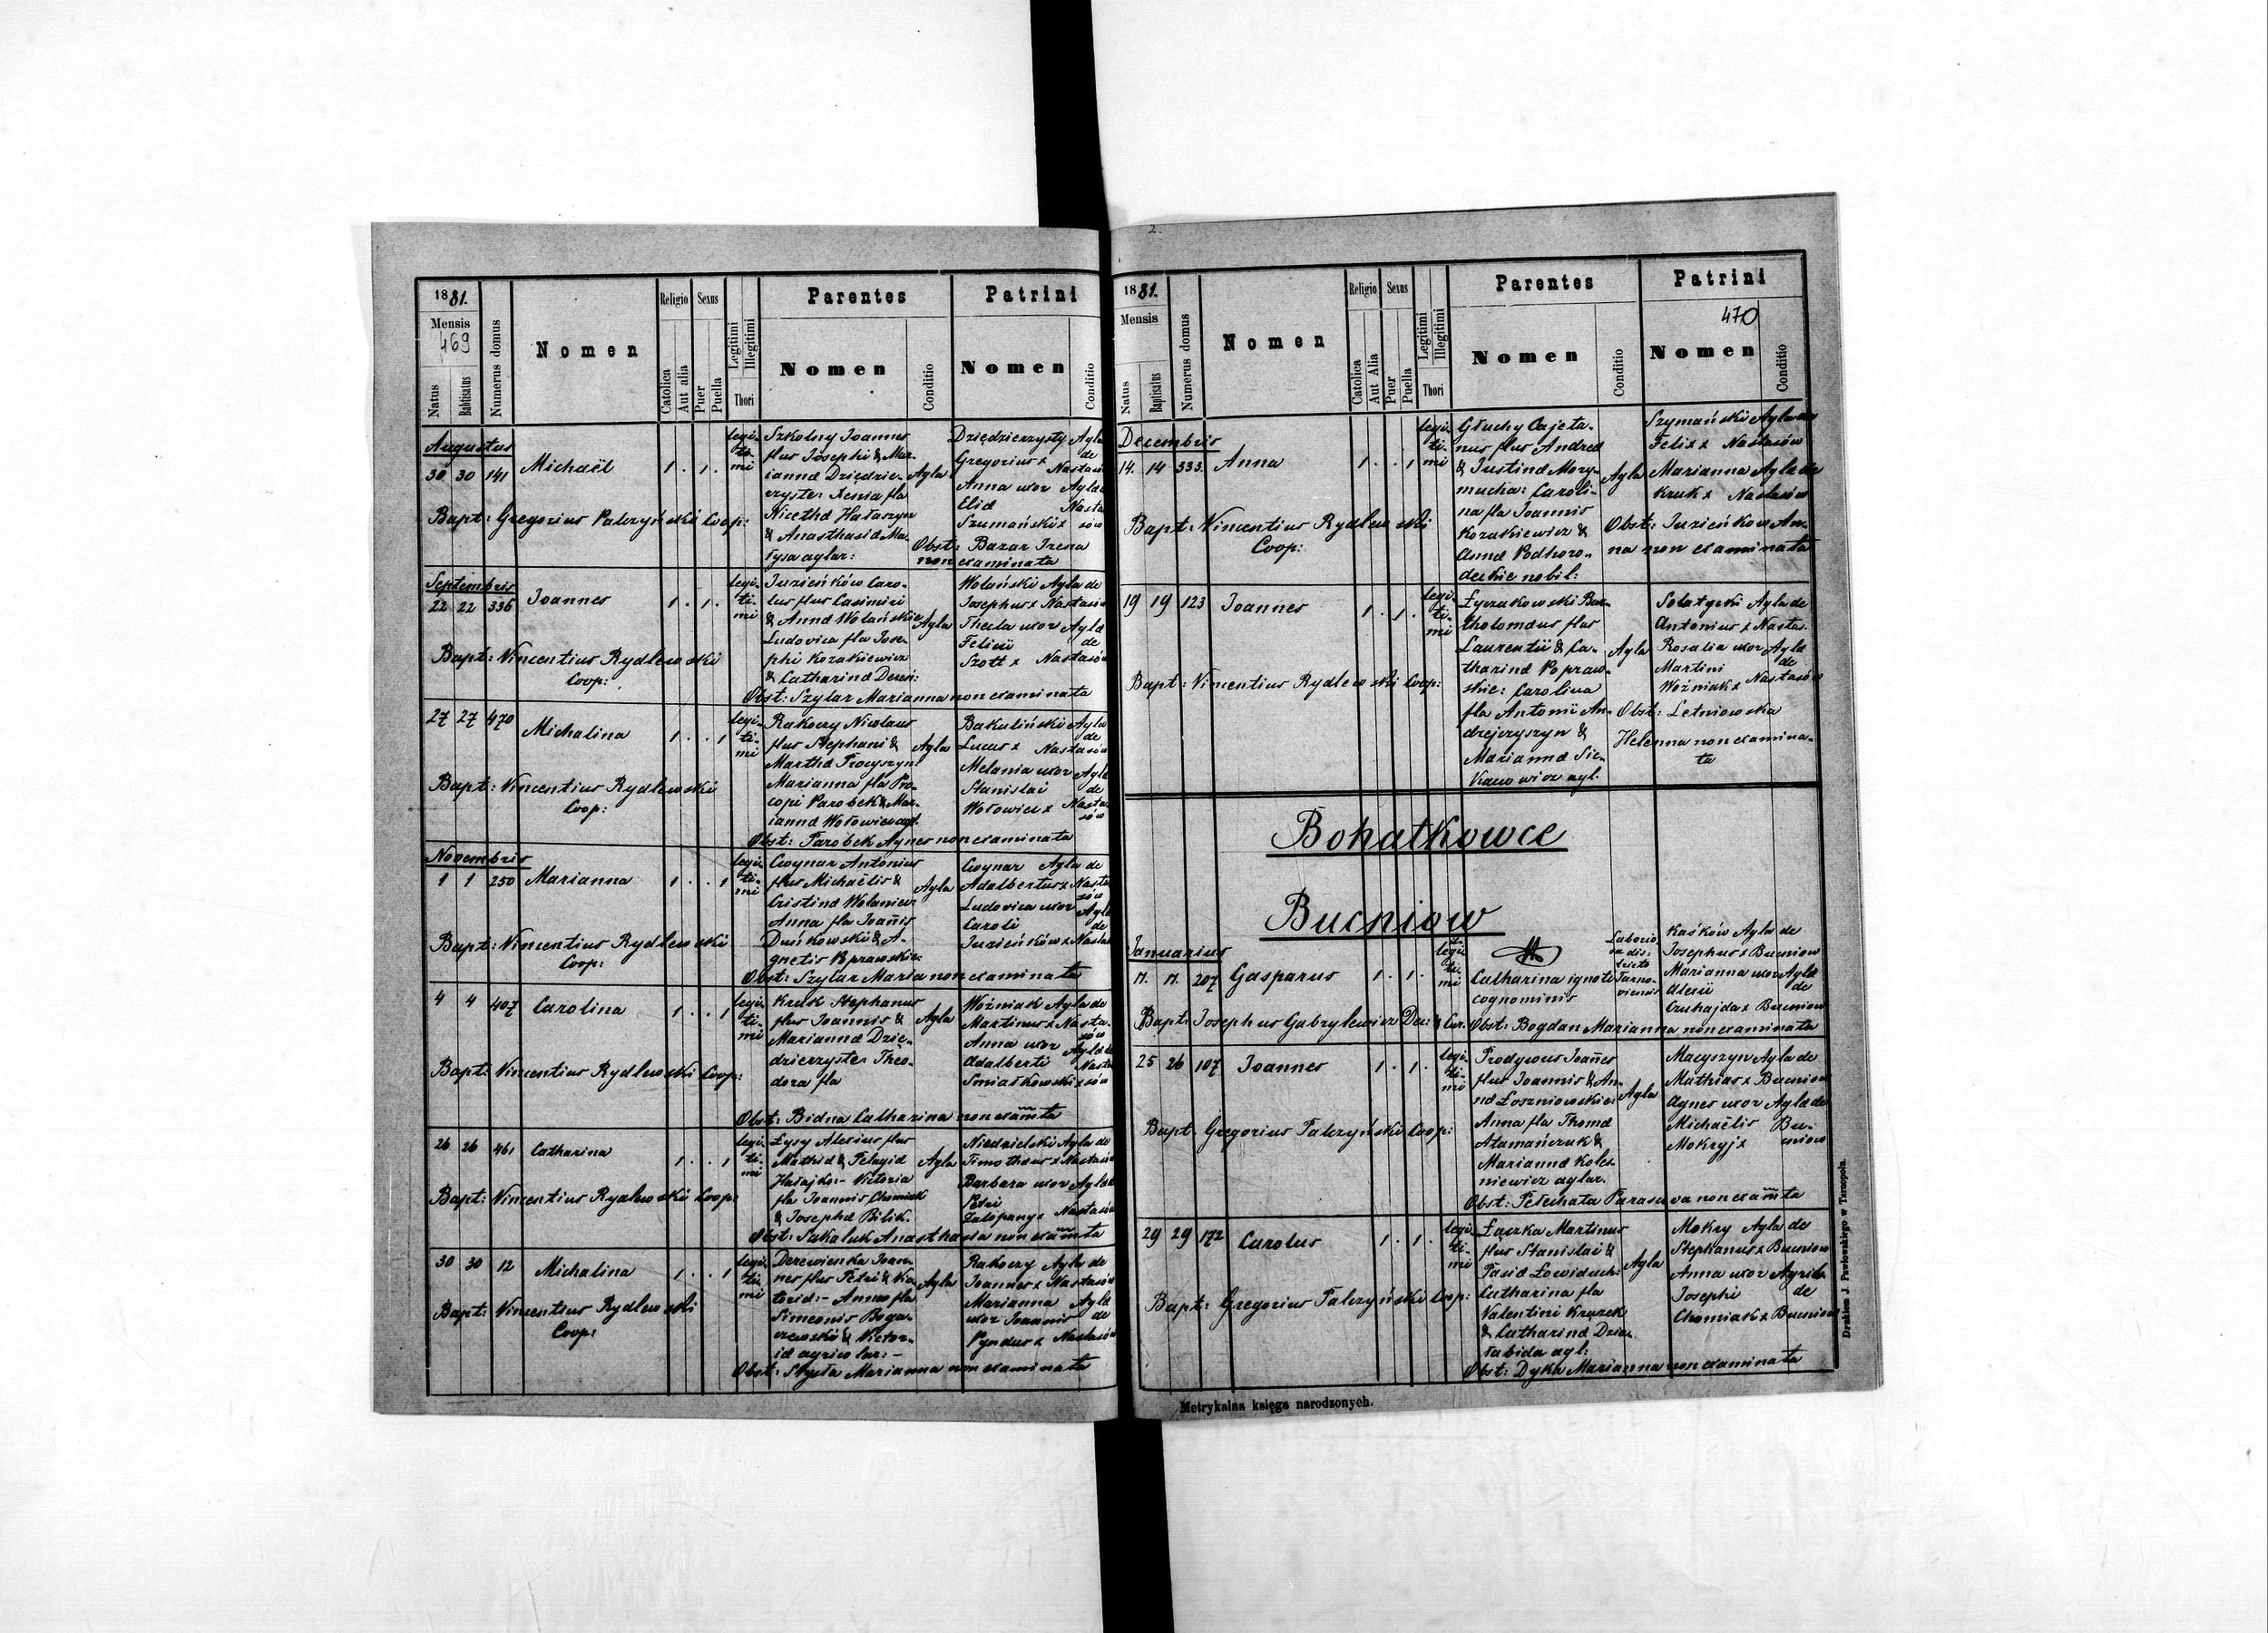 1881.
Mensis
469
Natus
Babtisatus
Numerus domus
Nomen
Religio
Catolica
Aut alia
Sexus
Puer
Puella
Legitimi
Illegitimi
Thori
Parentes
Nomen
Conditio
Patrini
Nomen
Conditio
Augustus
30 30 141 Michaël 1 . 1 .
legi-
ti-
mi
Szkolny Joannes
flus Josephi & Mar-
ianna Dziędzie-
rzyste: Xenia fla
Nicetha Hałaszyn
& Anasthasia Ma-
łysa aglar:
Agla
Dziędzierzysty Agla
Gregorius x de
Anna uxor
Elia
Szumański x
Bapt: Gregorius Palczyński Coop:
Obst: Bazar Irena
non examinata
Septembris
22 22 336 Joannes 1 . 1 .
legi-
ti-
mi
Juzieńków Caro-
lus flus Casimiri
& Anna Wolańskie
Ludovica fla Jose-
phi Kozakiewicz
& Catharina
Agla
Wolański Agla de
Josephus x Nastasów
Thecla uxor Agla
Felicii de
Szott x Nastasów
Bapt: Vincentius Rydlewski
Coop:
Obst: Szylar Marianna non examinata
27 27 470 Michalina 1 . . 1
legi-
ti-
mi
Rakoczy Nicolaus
flus Stephani &
Martha Procyszyn:
Marianna fla Pro-
copi Parobek & Mar-
ianna Wołowiec agl.
Agla
Bakuliński Agla
Lucas x de Nastasów
Melania uxor Agla
Stanislai de
Wołowiec x Nasta-
sów
Bapt: Vincentius Rydlewski
Coop:
Obst: Parobek Agnes non examinata
Novembris
1 1 250 Marianna 1 . . 1
legi-
ti-
mi
Cwynar Antonius
flus Michaëlis &
Cristina Wolaniec
Anna fla Joañis
Duńkowski & A-
gnetis Poprawskie:
Agla
Cwynar Agla de
Adalbertus x Nasta-
sów
Ludovica uxor Agla
Caroli de
Juzieńków x
Bapt: Vincentius Rydlewski
Coop:
Obst: Szylar Maria non examinata
4 4 407 Carolina 1 . . 1
legi-
ti-
mi
Kruk Stephanus
flus Joannis &
Marianna Dzię-
dzierzyste: Theo-
dora fla
Agla
Woźniak Agla de
Martinus x Nasta-
sów
Anna uxor
Adalberti
Smiałkowski x
Bapt: Vincentius Rydlewski Coop:
Obst: Bidna Catharina non examta
26 26 461 Catharina 1 . . 1
legi-
ti-
mi
Łysy Alexius flus
Mathia & Pelagia
Hałajko:- Victoria
fla Joannis Chomiak
& Josepha Bilik.
Agla
Niedzielski Agla de
Timotheus x Nastasów
Barbara uxor Agla
Petri
Nastasów
Bapt: Vincentius Rydlewski Coop:
Obst: Sakaluk Anasthasia non examta
30 30 12 Michalina 1 . . 1
legi-
ti-
mi
Derewienka Joan-
nes flus Petri & Ka-
toria:- Anna fla
Simeonis Boga-
czewski & Victor-
ia agricolar:-
Agla
Rakoczy Agla de
Joannes x Nastasów
Marianna Agla
uxor Joannis de
Pyndus x Nastasów
Bapt: Vincentius Rydlewski
Coop:
Obst: Słysła Marianna non examinata
2.
1881.
Mensis
Natus
Baptisatus
Numerus domus
Nomen
Religio
Catolica
Aut Alia
Sexus
Puer
Puella
Legitimi
Illegitimi
Thori
Parentes
Nomen
Conditio
Patrini
470
Nomen
Conditio
Decembris
14. 14 333. Anna 1 . . 1
legi-
ti-
mi
Głuchy Cajeta-
nus flus Andrea
& Justina Mozy-
mucha: Caroli-
na fla Joannis
Kozakiewicz &
Anna Podhoro-
deckie nobil:
Agla
Szymański Agla de
Felix x Nastasów
Marianna Agla de
Kruk x Nastasów
Bapt: Vincentius Rydlewski
Coop:
Obst: Juzieńków An-
na non examinata
19 19 123 Joannes 1 . 1 .
legi-
ti-
mi
Łyczakowski Bar-
tholomaus flus
Laurentii & Ca-
tharina Popraw-
skie: Carolina
fla Antonii An-
drejczyszyn &
Marianna Sie-
kacowicz agl.
Agla
Sołtycki Agla de
Antonius x Nasta-
Rosalia uxor Agla
Martini de
Woźniak x Nastasów
Bapt: Vincentius Rydlewski Coop:
Obst: Letniowska
Helenna non examina-
ta
Bohatkowce
Bucniow
Januarius
11. 11. 207 Gasparus 1 . 1 .
legi-
ti-
mi
Catharina ignoti
cognominis
Laborio-
sa dis-
tricto
Tarno-
viensis
Kaśków Agla de
Josephus x Bucniow
Marianna uxor Agla
Alexii de
Czuhajda x Bucniow
Bapt: Josephus Gabrylewicz Dec: & Cur.
Obst: Bogdan Marianna non examinata
25 26 107 Joannes 1 . 1 .
legi-
ti-
mi
Prodywus Joañes
flus Joannis & An-
na Łoszniowskie:
Anna fla Thoma
Atamańczuk &
Marianna Koles-
niewicz aglar.
Agla
Macyszyn Agla de
Mathias x Bucniow
Agnes uxor Agla de
Michaëlis Bu-
Mokryj x cniow
Bapt. Gregorius Palczyński Coop:
Obst: Pełechata Parascva non examta
29 29 172 Carolus 1 . 1 .
legi-
ti-
mi
Łączka Martinus
flus Stanislai &
Pasid Łowiduch:
Catharina fla
Valentini Krączek
& Catharina Dzia-
łabida agl:
Agla
Mokry Agla de
Stephanus x Bucniow
Anna uxor Agrib.
Josephi de
Chomiak x Bucniow
Bapt: Gregorius Palczyński Coop:
Obst: Dyka Marianna non examinata
Metrykalna księga narodzonych.
Drukiem J. Pawłowskiego w Tarnopolu.